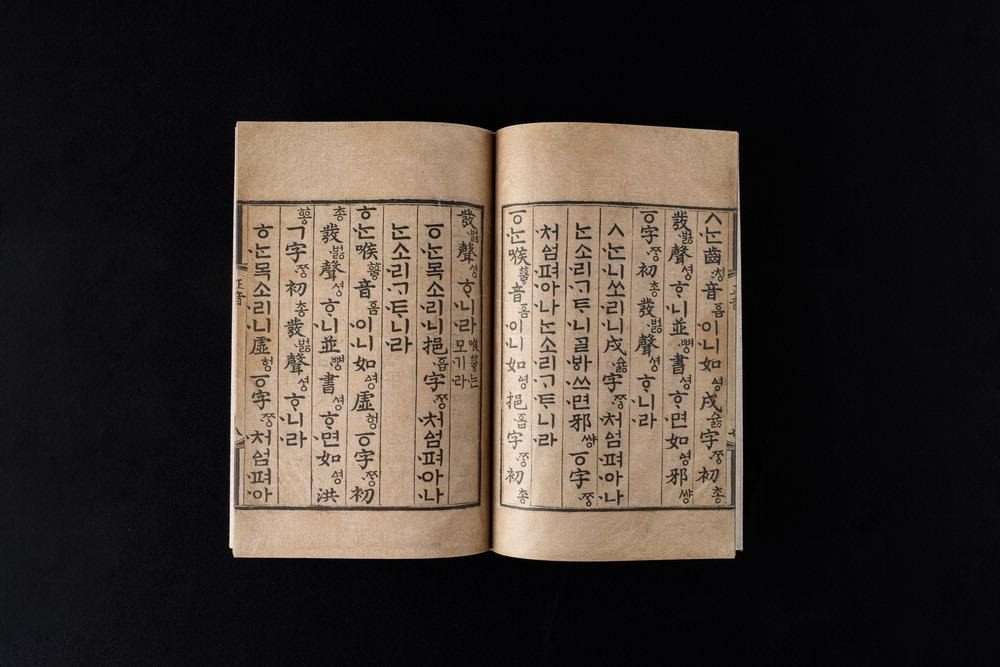 ㅅᄂᆞᆫ齒칭音ᅙᅳᆷ이니如ᅀᅧᆼ戌슗字ᄍᆞᆼ初총
發벓聲셩ᄒᆞ니並뼝書셩ᄒᆞ면如ᅀᅧᆼ邪썅
ㆆ字ᄍᆞᆼ初총發벓聲셩ᄒᆞ니라
ㅅᄂᆞᆫ니쏘리니戌슗字ᄍᆞᆼ처ᅀᅥᆷ펴아나
ᄂᆞᆫ소리ᄀᆞᄐᆞ니ᄀᆞᆯᄫᅡ쓰면邪썅ㆆ字ᄍᆞᆼ
처ᅀᅥᆷ펴아나ᄂᆞᆫ소리ᄀᆞᄐᆞ니라
ㆆᄂᆞᆫ喉ᅘᅮᇢ音ᅙᅳᆷ이니如ᅀᅧᆼ挹ᅙᅳᆸ字ᄍᆞᆼ初총
發벓聲셩ᄒᆞ니라喉ᅘᅮᇢ는모기라
ㆆᄂᆞᆫ목소리니挹ᅙᅳᆸ字ᄍᆞᆼ처ᅀᅥᆷ펴아나
ᄂᆞᆫ소리ᄀᆞᄐᆞ니라
ㅎᄂᆞᆫ喉ᅘᅮᇢ音ᅙᅳᆷ이니如ᅀᅧᆼ虛헝ㆆ字ᄍᆞᆼ初
총發벓聲셩ᄒᆞ니並뼝書셩ᄒᆞ면如ᅀᅧᆼ洪
ᅘᅩᇰㄱ字ᄍᆞᆼ初총發벓聲셩ᄒᆞ니라
ㅎᄂᆞᆫ목소리니虛헝ㆆ字ᄍᆞᆼ처ᅀᅥᆷ펴아
正音